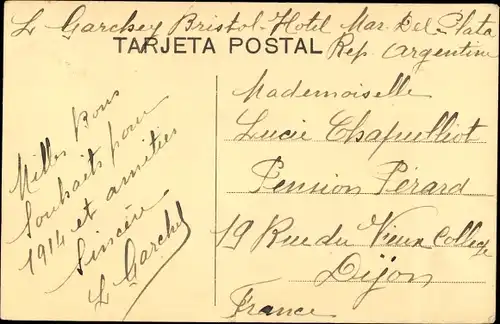 L Garchey Bristol-Hotel Mar. Del-Plata
Rep. Argentine
TARJETA POSTAL
Milles Bons
Souhaits pour
1914 et amitiés
Sincère
L Garchey
Mademoiselle
Lucie Chapuilliot
Pension Pérard
19 Rue du Vieux College
Dijon
France